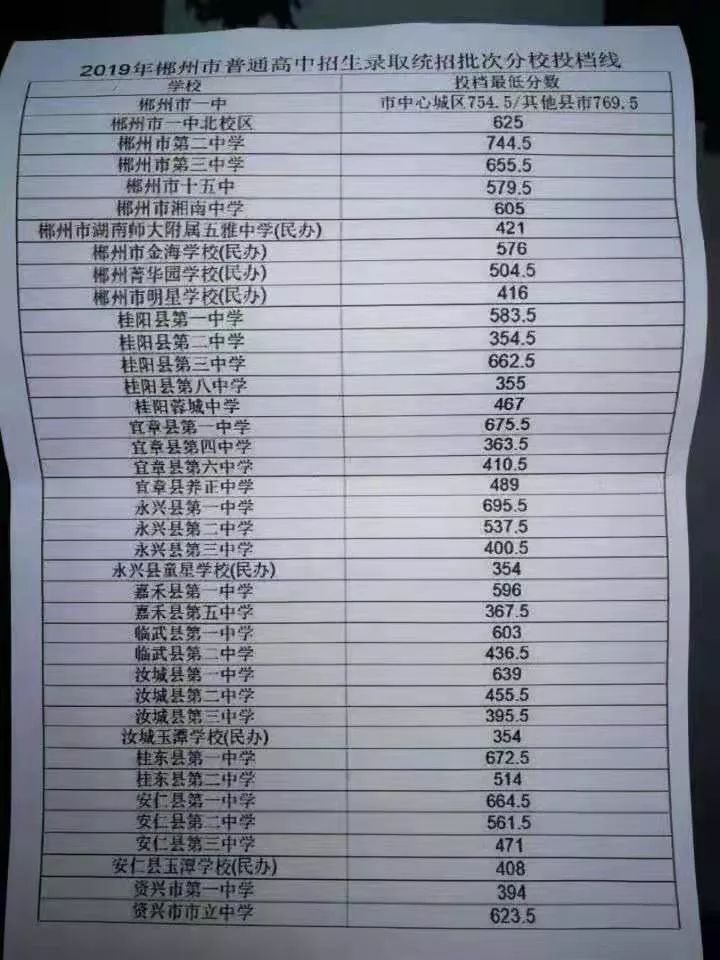 2019年郴州市普通高中招生录取统招批次分校投档线
学校 投档最低分数
郴州市一中 市中心城区754.5/其他县市769.5
郴州市一中北校区 625
郴州市第二中学 744.5
郴州市第三中学 655.5
郴州市十五中 579.5
郴州市湘南中学 605
郴州市湖南师大附属五雅中学(民办) 421
郴州市金海学校(民办) 576
郴州菁华园学校(民办) 504.5
郴州市明星学校(民办) 416
桂阳县第一中学 583.5
桂阳县第二中学 354.5
桂阳县第三中学 662.5
桂阳县第八中学 355
桂阳蓉城中学 467
宜章县第一中学 675.5
宜章县第四中学 363.5
宜章县第六中学 410.5
宜章县养正中学 489
永兴县第一中学 695.5
永兴县第二中学 537.5
永兴县第三中学 400.5
永兴县童星学校(民办) 354
嘉禾县第一中学 596
嘉禾县第五中学 367.5
临武县第一中学 603
临武县第二中学 436.5
汝城县第一中学 639
汝城县第二中学 455.5
汝城县第三中学 395.5
汝城玉潭学校(民办) 354
桂东县第一中学 672.5
桂东县第二中学 514
安仁县第一中学 664.5
安仁县第二中学 561.5
安仁县第三中学 471
安仁县玉潭学校(民办) 408
资兴市第一中学 394
资兴市市立中学 623.5